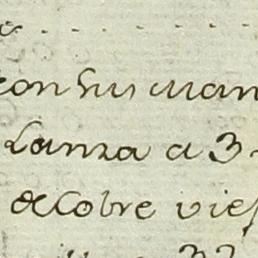 con sus man
Lanza a 3
de cobre vies